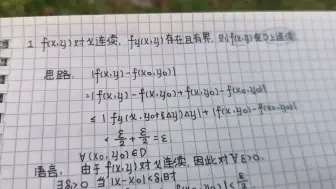 1. f(x,y)对x连续, fy(x,y)存在且有界, 则f(x,y)在D上连续.
思路: |f(x,y)-f(x0,y0)|
=|f(x,y)-f(x,y0)+f(x,y0)-f(x0,y0)|
≤|fy(x,y0+θΔy)Δy|+|f(x,y0)-f(x0,y0)|
≤ε/2+ε/2=ε.
∀(x0,y0)∈D
语言: 由于f(x,y)对x连续, 因此对∀ε>0.
∃δ1>0 当|x-x0|<δ1时